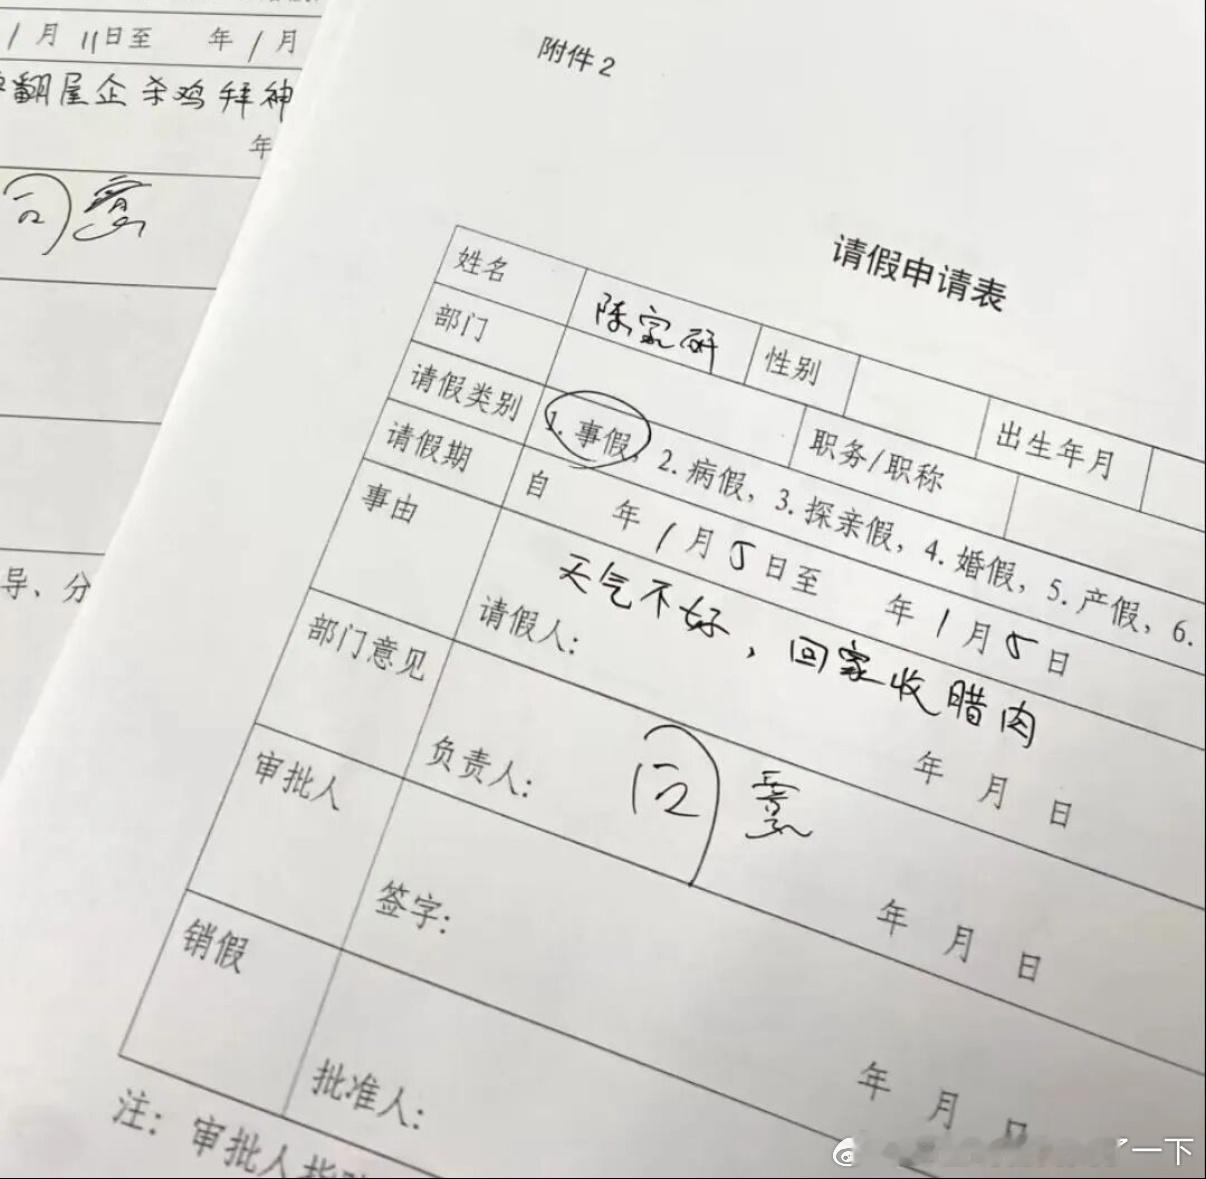 1月11日至 年1月
翻屋企杀鸡拜神
年
同意
导、分
附件2
请假申请表
姓名 陈家研 性别 出生年月
部门 职务/职称
请假类别 1.事假，2.病假，3.探亲假，4.婚假，5.产假，6.
请假期 自 年1月5日至 年1月5日
事由 天气不好，回家收腊肉
请假人： 年 月 日
部门意见
负责人： 同意 年 月 日
审批人
签字： 年 月 日
销假
批准人：
注：审批人指
一下